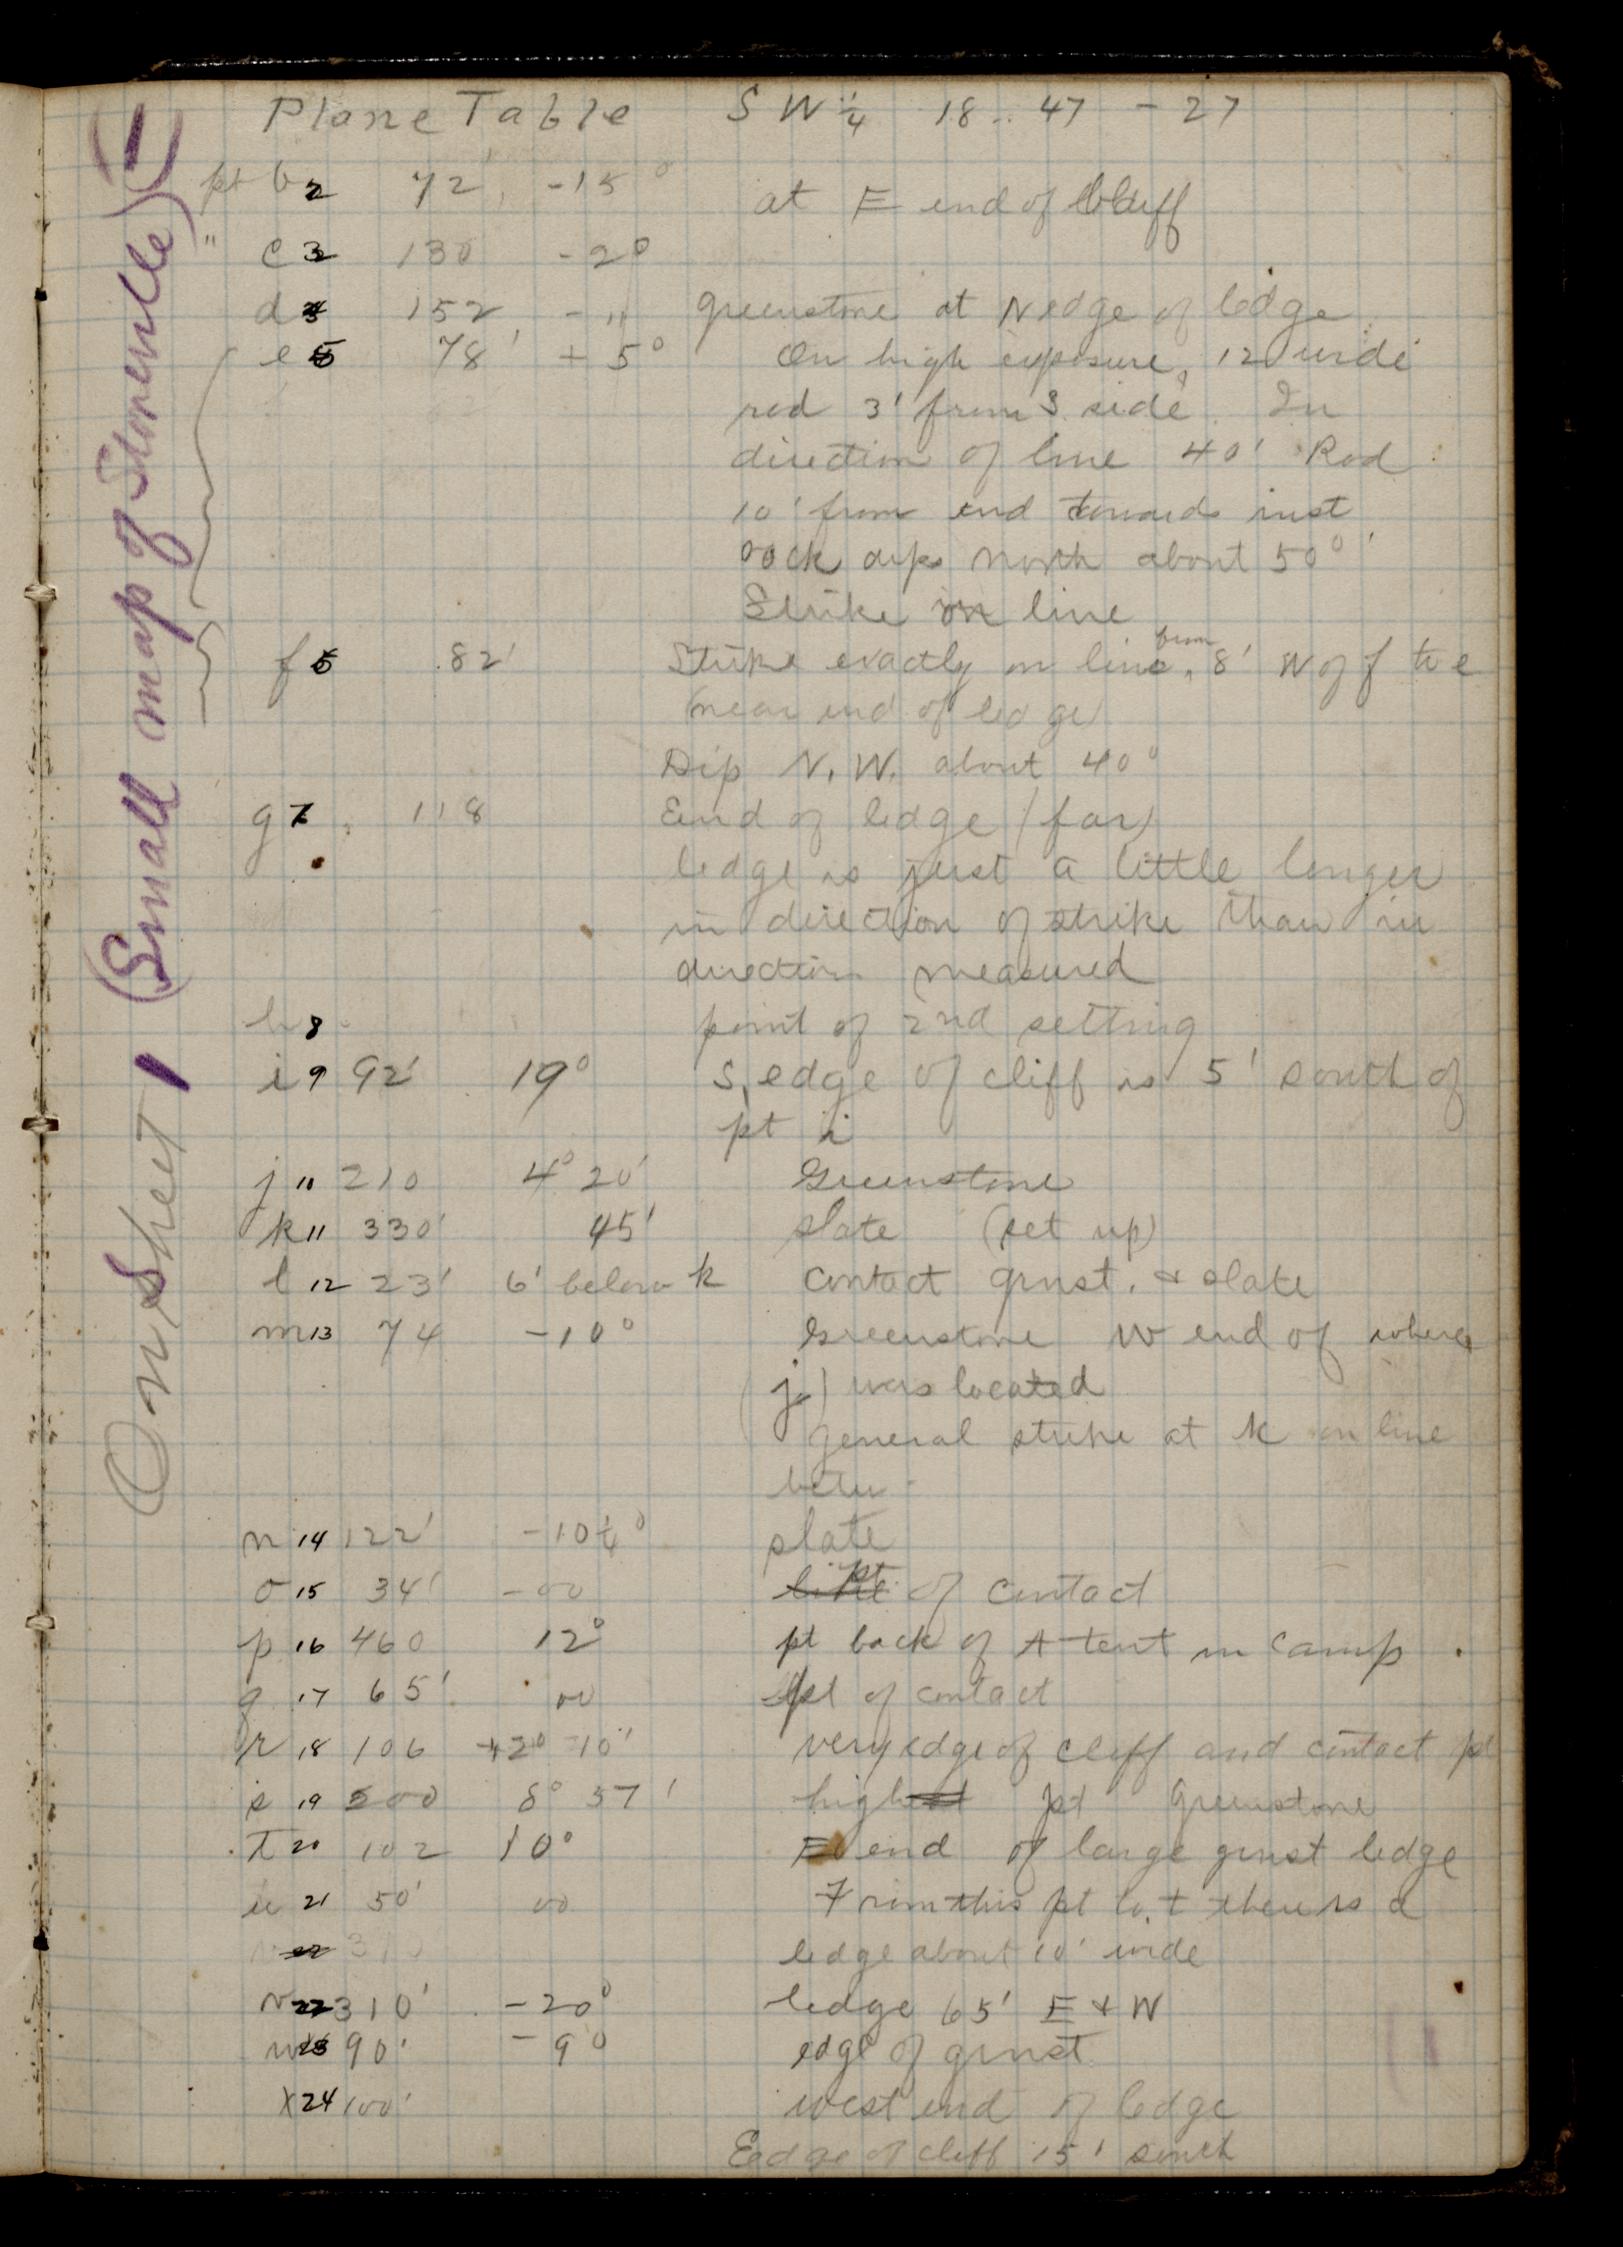 Plane Table SW 1/4 18.. 47 - 27
pt b 2 72' -15° at E end of Cliff
" c 3 130 -2°
d 4 152 - " greenstone at N edge of ledge
e 5 78' +5° On high exposure, 12' wide
rod 3' from S. side. In
direction of line 40' Rod
10' from end towards inst.
rock dips north about 50°
Strike on line
f 6 82' Strike exactly on line, from 8' W of f to e
(near end of ledge)
Dip N.W. about 40°
g 7 118 End of ledge (far)
ledge is just a little longer
in direction of strike than in
direction measured
h 8 point of 2nd setting
i 9 92' 19° S. edge of cliff is 5' south of
pt i
j 10 210 4° 20' Greenstone
k 11 330' 45' slate (set up)
l 12 23' 6' below k contact grnst. & slate
m 13 74 -10° Greenstone W end of where
(j) was located
general strike at k on line
betw
n 14 122' -10 1/4° slate
o 15 34' -00 line pt. of contact
p 16 460 12° pt back of A tent in camp.
q 17 65' 00 pt of contact
r 18 106 +2° 10' very edge of cliff and contact pt
s 19 500 8° 37' highest pt Greenstone
t 20 102 10° E end of large grnst ledge
u 21 50' 00 From this pt to t there is a
22 310 ledge about 10' wide
v 22 310' -20° ledge 65' E & W
w 23 90' -9° edge of grnst
x 24 100' west end of ledge
Edge of cliff 15' south
On Sheet 1 (Small map of Stoneville) 1